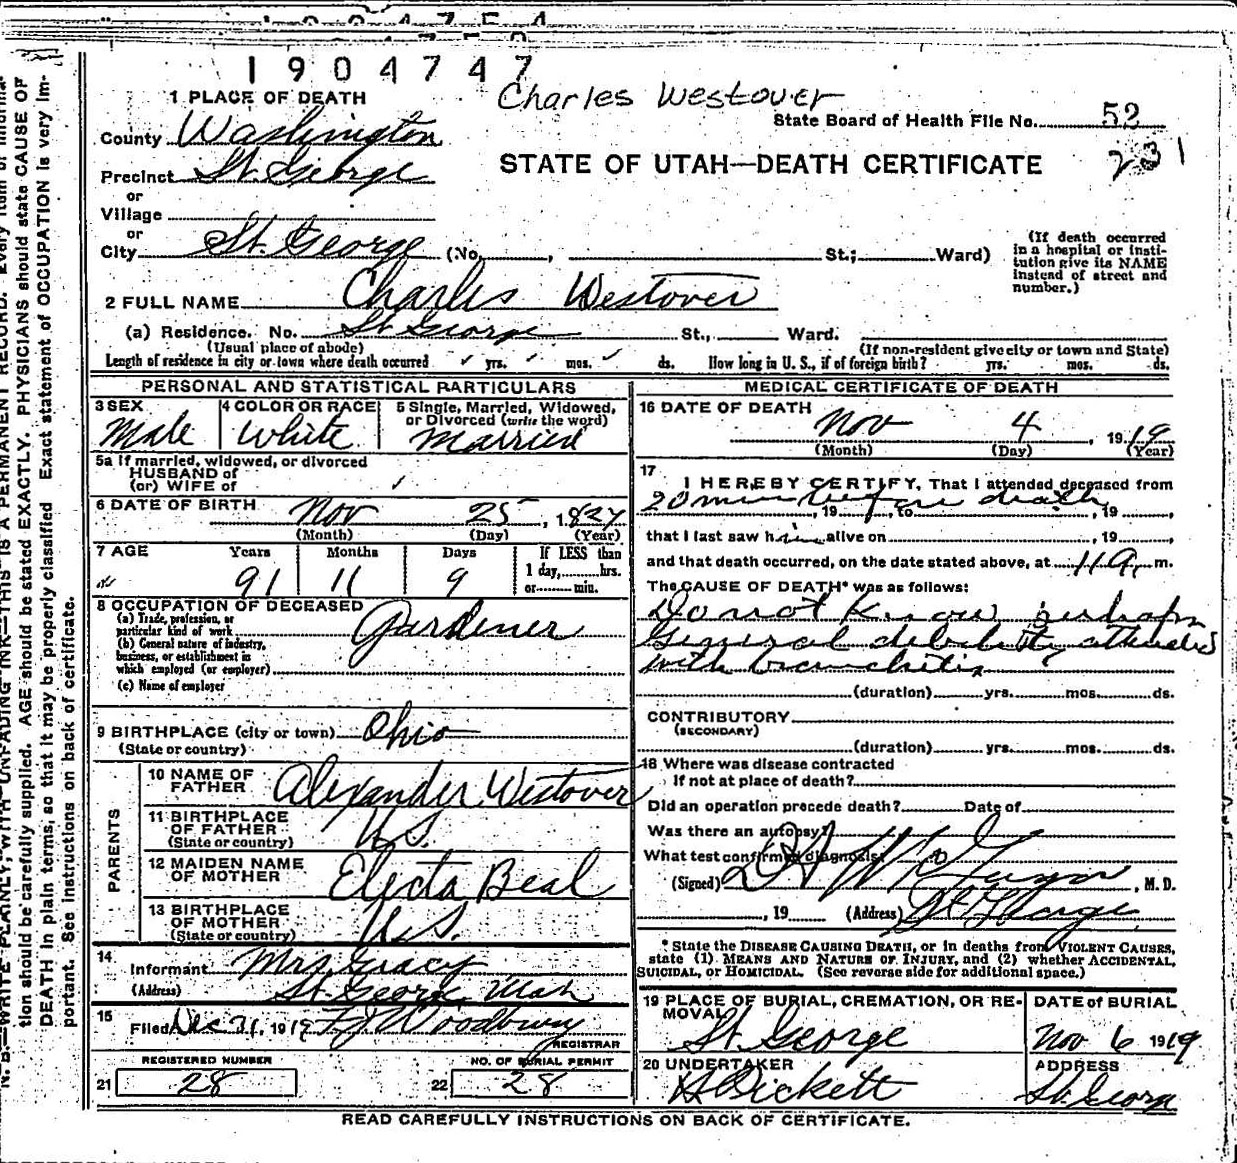 1904747
Charles Westover
1 PLACE OF DEATH
State Board of Health File No. 52
231
County Washington
STATE OF UTAH—DEATH CERTIFICATE
Precinct St. George
or
Village
or
City St. George (No. , St.; Ward)
(If death occurred in a hospital or insti-
tution give its NAME
instead of street and
number.)
2 FULL NAME Charles Westover
(a) Residence. No. St. George St., Ward.
(Usual place of abode) (If non-resident give city or town and State)
Length of residence in city or town where death occurred yrs. mos. ds. How long in U. S., if of foreign birth? yrs. mos. ds.
PERSONAL AND STATISTICAL PARTICULARS
3 SEX 4 COLOR OR RACE 5 Single, Married, Widowed,
or Divorced (write the word)
Male White Married
5a If married, widowed, or divorced
HUSBAND of
(or) WIFE of
6 DATE OF BIRTH Nov 25, 1827
(Month) (Day) (Year)
7 AGE Years Months Days If LESS than
1 day, hrs.
or min.
91 11 9
8 OCCUPATION OF DECEASED
(a) Trade, profession, or
particular kind of work Gardener
(b) General nature of industry,
business, or establishment in
which employed (or employer)
(c) Name of employer
9 BIRTHPLACE (city or town) Ohio
(State or country)
PARENTS
10 NAME OF
FATHER Alexander Westover
11 BIRTHPLACE
OF FATHER U.S.
(State or country)
12 MAIDEN NAME
OF MOTHER Electa Beal
13 BIRTHPLACE
OF MOTHER U.S.
(State or country)
14
Informant Mrs. Gracy
(Address) St. George Utah
15
Filed Dec 31, 1919 F. J. Woodbury
REGISTRAR
REGISTERED NUMBER NO. OF BURIAL PERMIT
21 28 22 28
MEDICAL CERTIFICATE OF DEATH
16 DATE OF DEATH
Nov 4, 1919
(Month) (Day) (Year)
17
I HEREBY CERTIFY, That I attended deceased from
20 min before death, 19 , to , 19 ,
that I last saw him alive on , 19 ,
and that death occurred, on the date stated above, at 11 a. m.
The CAUSE OF DEATH* was as follows:
Do not know perhaps
General debility attended
with bronchitis
(duration) yrs. mos. ds.
CONTRIBUTORY
(SECONDARY)
(duration) yrs. mos. ds.
18 Where was disease contracted
If not at place of death?
Did an operation precede death? Date of
Was there an autopsy?
What test confirmed diagnosis?
(Signed) , M. D.
, 19 (Address) St. George
* State the DISEASE CAUSING DEATH, or in deaths from VIOLENT CAUSES,
state (1) MEANS AND NATURE OF INJURY, and (2) whether ACCIDENTAL,
SUICIDAL, or HOMICIDAL. (See reverse side for additional space.)
19 PLACE OF BURIAL, CREMATION, OR RE-
MOVAL
DATE of BURIAL
St. George Nov 6 1919
20 UNDERTAKER ADDRESS
Pickett St. George
READ CAREFULLY INSTRUCTIONS ON BACK OF CERTIFICATE.
N. B.—WRITE PLAINLY, WITH UNFADING INK—THIS IS A PERMANENT RECORD. Every item of informa-
tion should be carefully supplied. AGE should be stated EXACTLY. PHYSICIANS should state CAUSE OF
DEATH in plain terms, so that it may be properly classified. Exact statement of OCCUPATION is very im-
portant. See instructions on back of certificate.